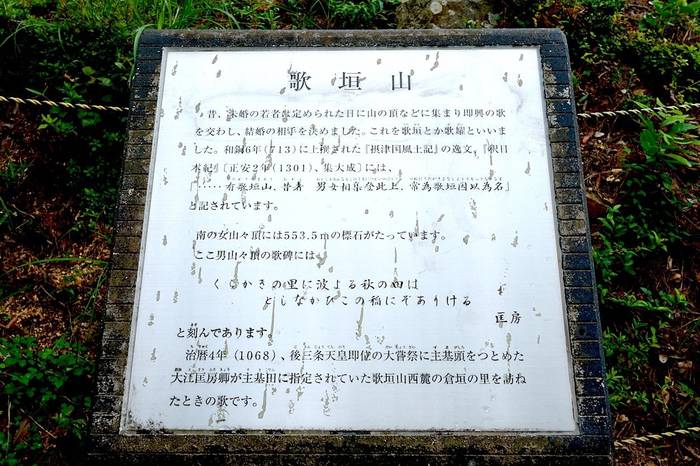 歌垣山
昔、未婚の若者が定められた日に山の頂などに集まり即興の歌
を交わし、結婚の相手を決めました。これを歌垣とか歌嬥といいま
した。和銅6年(713)に上撰された『摂津国風土記』の逸文、『釈日
本紀』〔正安2年(1301)、集大成〕には、
「‥‥‥有歌垣山、昔者 男女相集登此上、常為歌垣因以為名」
と記されています。
南の女山々頂には553.5mの標石がたっています。
ここ男山々頂の歌碑には、
くらかきの里に波よる秋の田は
としなかひこの稲にそありける
匡房
と刻んであります。
治暦4年(1068)、後三条天皇即位の大嘗祭に主基頭をつとめた
大江匡房卿が主基田に指定されていた歌垣山西麓の倉垣の里を訪ね
たときの歌です。